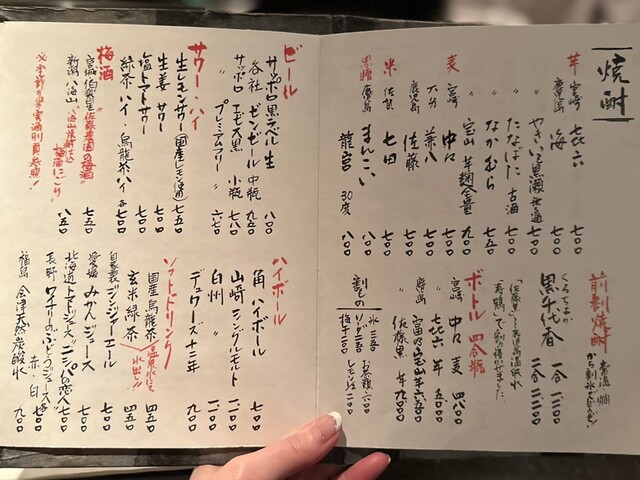 焼酎
芋 宮崎 㐂六 七〇〇
鹿児島 海 七〇〇
〃 やきいも黒瀬 七〇〇
〃 たなばた 古酒 七〇〇
〃 なかむら 七五〇
〃 宝山 芋麹全量 九〇〇
麦 宮崎 中々 七〇〇
大分 兼八
鹿児島 佐藤
米 佐賀 七田 七〇〇
黒糖 まんこい 八〇〇
龍宮 30度 八〇〇
前割焼酎 常温・燗
くろぢょか
黒千代香 一合 一、二〇〇
二合
ボトル 四合瓶
宮崎 中々 麦 四八〇〇
〃 㐂六 芋 五〇〇〇
鹿児島 富乃宝山 芋 六五〇〇
〃 佐藤黒 芋 九〇〇〇
割もの
氷 三五〇
お茶類 六〇〇
ビール
サッポロ黒ラベル 生 八〇〇
各社 ビンビール 中瓶 九五〇
サッポロ ヱビス黒 小瓶 七八〇
〃 プレミアムフリー 六七〇
サワー・ハイ
生レモンサワー(国産レモン使用) 七五〇
生姜サワー 七〇〇
塩トマトサワー 七〇〇
緑茶ハイ・烏龍茶ハイ 各七〇〇
梅酒
宮城 伯楽星 佐藤農園の梅酒 七五〇
新潟 八海山 八海山焼酎仕込 梅酒にごり 八五〇
※季節の果実酒別頁参照!
ハイボール
角ハイボール 七〇〇
山崎シングルモルト 一二〇〇
白州 〃 一二〇〇
デュワーズ十二年 九〇〇
ソフトドリンク
国産烏龍茶 四五〇
玄米緑茶 四五〇
温・冷にて 水出し!!
自家製 ジンジャーエール 七〇〇
愛媛 みかんジュース 七〇〇
北海道 トマトジュース"ニシパの恋人" 七〇〇
長野 ワイナリーのぶどうジュース 赤・白 各七〇〇
福島 会津天然炭酸水 九〇〇